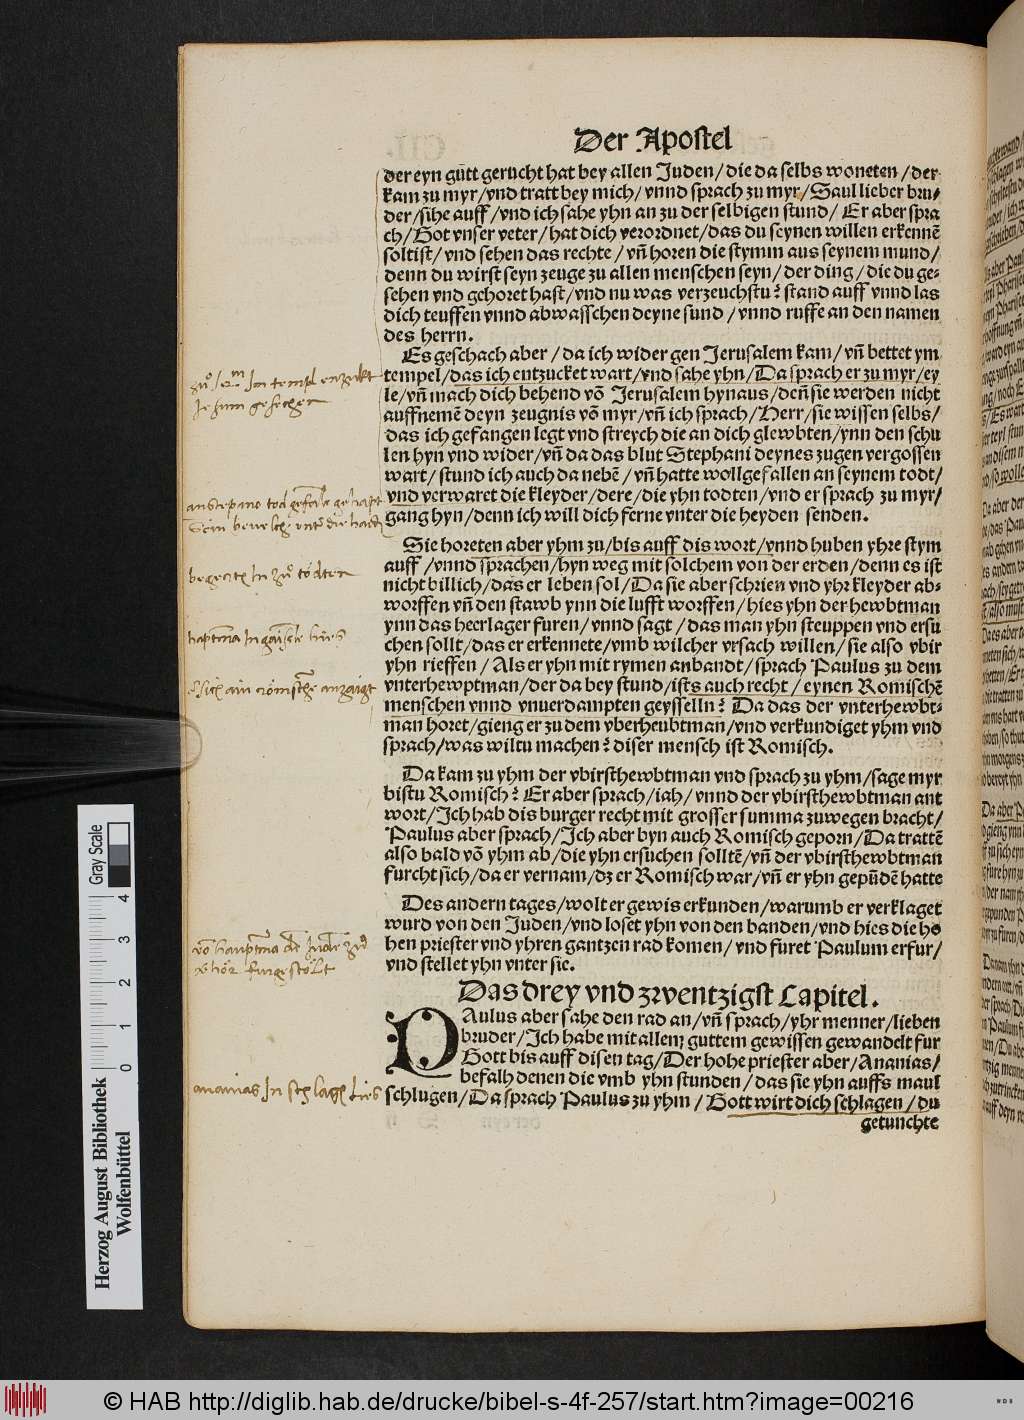 Der Apostel
der eyn gůtt gerucht hat bey allen Juden / die da selbs woneten / der
kam zu myr / vnd tratt bey mich / vnnd sprach zu myr / Saul lieber bru⸗
der / sihe auff / vnd ich sahe yhn an zu der selbigen stund / Er aber spra
ch / Got vnser veter / hat dich verordnet / das du seynen willen erkennē
soltist / vnd sehen das rechte / vn̄ horen die stymm aus seynem mund /
denn du wirst seyn zeuge zu allen menschen seyn / der ding / die du ge⸗
sehen vnd gehoret hast / vnd nu was verzeuchstu? stand auff vnnd las
dich teuffen vnnd abwasschen deyne sund / vnnd ruffe an den namen
des herrn.
Es geschach aber / da ich wider gen Jerusalem kam / vn̄ bettet ym
tempel / das ich entzucket wart / vnd sahe yhn / Da sprach er zu myr / ey
le / vn̄ mach dich behend vō Jerusalem hynaus / den̄ sie werden nicht
auffnemē deyn zeugnis vō myr / vn̄ ich sprach / Herr / sie wissen selbs /
das ich gefangen legt vnd streych die an dich glewbten / ynn den schu
len hyn vnd wider / vn̄ da das blut Stephani deynes zugen vergossen
wart / stund ich auch da nebē / vn̄ hatte wollgefallen an seynem todt /
vnd verwaret die kleyder / dere / die yhn todten / vnd er sprach zu myr /
gang hyn / denn ich will dich ferne vnter die heyden senden.
Sie horeten aber yhm zu / bis auff dis wort / vnnd huben yhre stym
auff / vnnd sprachen / hyn weg mit solchem von der erden / denn es ist
nicht billich / das er leben sol / Da sie aber schrien vnd yhr kleyder ab⸗
worffen vn̄ den stawb ynn die lufft worffen / hies yhn der hewbtman
ynn das heerlager furen / vnnd sagt / das man yhn steuppen vnd ersu
chen sollt / das er erkennete / vmb wilcher vrsach willen / sie also vbir
yhn rieffen / Als er yhn mit rymen anbandt / sprach Paulus zu dem
vnterhewptman / der da bey stund / ists auch recht / eynen Romischē
menschen vnnd vnuerdampten geysselln? Da das der vnterhewbt⸗
man horet / gieng er zu dem vberheubtman / vnd verkundiget yhm vnd
sprach / was wiltu machen? diser mensch ist Romisch.
Da kam zu yhm der vbirsthewbtman vnd sprach zu yhm / sage myr
bistu Romisch? Er aber sprach / iah / vnnd der vbirsthewbtman ant
wort / Ich hab dis burger recht mit grosser summa zuwegen bracht /
Paulus aber sprach / Ich aber byn auch Romisch geporn / Da trattē
also bald vō yhm ab / die yhn ersuchen solltē / vn̄ der vbirsthewbtman
furcht sich / da er vernam / dz er Romisch war / vn̄ er yhn gepūdē hatte
Des andern tages / wolt er gewis erkunden / warumb er verklaget
wurd von den Juden / vnd loset yhn von den banden / vnd hies die ho
hen priester vnd yhren gantzen rad komen / vnd furet Paulum erfur /
vnd stellet yhn vnter sie.
Das drey vnd zwentzigst Capitel.
PAulus aber sahe den rad an / vn̄ sprach / yhr menner / lieben
bruder / Ich habe mit allem guttem gewissen gewandelt fur
Gott bis auff disen tag / Der hohe priester aber / Ananias /
befalh denen die vmb yhn stunden / das sie yhn auffs maul
schlugen / Da sprach Paulus zu yhm / Gott wirt dich schlagen / du
getunchte
Im templ entzukt
Jesum gesechen
begerten In zů tödten
ananias In schlagen lies
Gray Scale
0 1 2 3 4
Herzog August Bibliothek
Wolfenbüttel
© HAB http://diglib.hab.de/drucke/bibel-s-4f-257/start.htm?image=00216